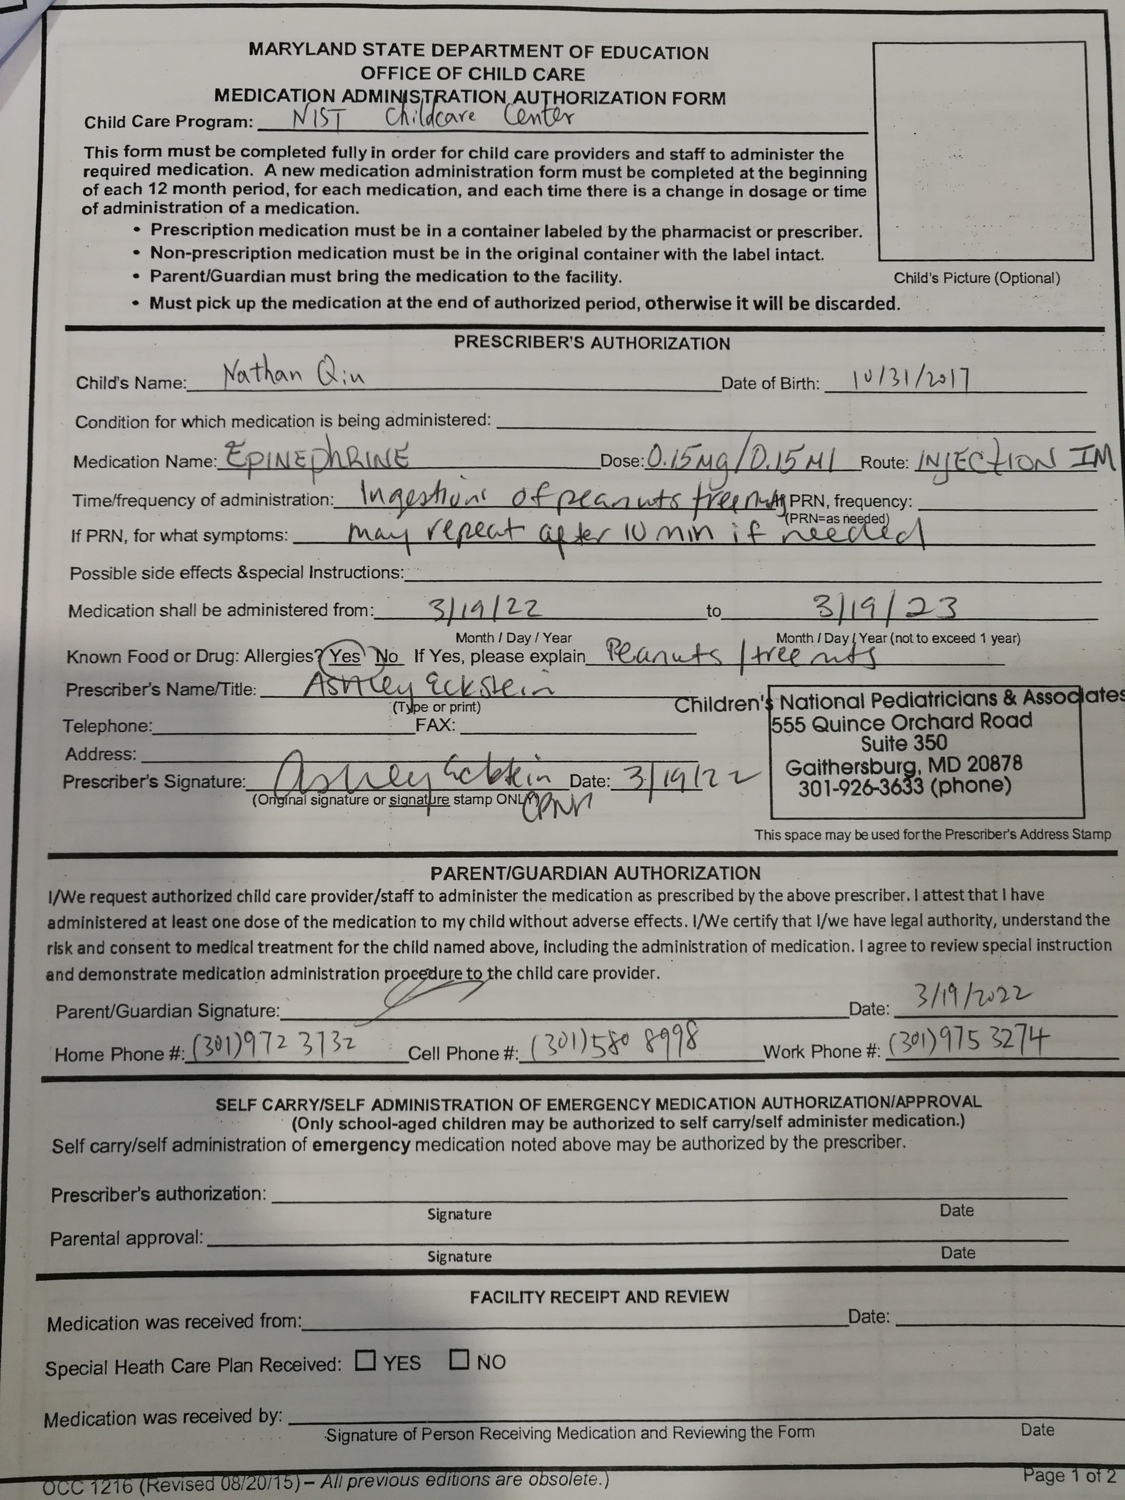 MARYLAND STATE DEPARTMENT OF EDUCATION
OFFICE OF CHILD CARE
MEDICATION ADMINISTRATION AUTHORIZATION FORM
Child Care Program: NIST Childcare Center
This form must be completed fully in order for child care providers and staff to administer the
required medication. A new medication administration form must be completed at the beginning
of each 12 month period, for each medication, and each time there is a change in dosage or time
of administration of a medication.
• Prescription medication must be in a container labeled by the pharmacist or prescriber.
• Non-prescription medication must be in the original container with the label intact.
• Parent/Guardian must bring the medication to the facility.
• Must pick up the medication at the end of authorized period, otherwise it will be discarded.
Child's Picture (Optional)
PRESCRIBER'S AUTHORIZATION
Child's Name: Nathan Qiu Date of Birth: 10/31/2017
Condition for which medication is being administered:
Medication Name: EPINEPhRINE Dose: 0.15mg/0.15Ml Route: INJECTION IM
Time/frequency of administration: Ingestions of peanuts tree nuts If PRN, frequency:
(PRN=as needed)
If PRN, for what symptoms: may repeat after 10 min if needed
Possible side effects &special Instructions:
Medication shall be administered from: 3/19/22 to 3/19/23
Month / Day / Year Month / Day / Year (not to exceed 1 year)
Known Food or Drug: Allergies? Yes No If Yes, please explain Peanuts / tree nuts
Prescriber's Name/Title: Ashley Eckstein
(Type or print)
Telephone: FAX:
Address:
Children's National Pediatricians & Associates
555 Quince Orchard Road
Suite 350
Gaithersburg, MD 20878
301-926-3633 (phone)
Prescriber's Signature: Ashley Eckstein Date: 3/19/22
(Original signature or signature stamp ONLY) CPNP
This space may be used for the Prescriber's Address Stamp
PARENT/GUARDIAN AUTHORIZATION
I/We request authorized child care provider/staff to administer the medication as prescribed by the above prescriber. I attest that I have
administered at least one dose of the medication to my child without adverse effects. I/We certify that I/we have legal authority, understand the
risk and consent to medical treatment for the child named above, including the administration of medication. I agree to review special instruction
and demonstrate medication administration procedure to the child care provider.
Parent/Guardian Signature: Date: 3/19/2022
Home Phone #: (301)972 3732 Cell Phone #: (301)580 8998 Work Phone #: (301)975 3274
SELF CARRY/SELF ADMINISTRATION OF EMERGENCY MEDICATION AUTHORIZATION/APPROVAL
(Only school-aged children may be authorized to self carry/self administer medication.)
Self carry/self administration of emergency medication noted above may be authorized by the prescriber.
Prescriber's authorization:
Signature Date
Parental approval:
Signature Date
FACILITY RECEIPT AND REVIEW
Medication was received from: Date:
Special Heath Care Plan Received: ☐ YES ☐ NO
Medication was received by:
Signature of Person Receiving Medication and Reviewing the Form Date
OCC 1216 (Revised 08/20/15) – All previous editions are obsolete.) Page 1 of 2